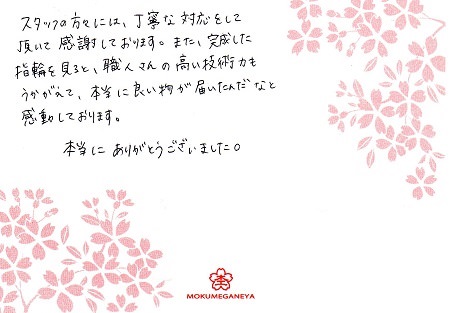 スタッフの方々には、丁寧な対応をして
頂いて感謝しております。また、完成した
指輪を見ると、職人さんの高い技術力も
うかがえて、本当に良い物が届いたんだなと
感動しております。
本当にありがとうございました。
MOKUMEGANEYA